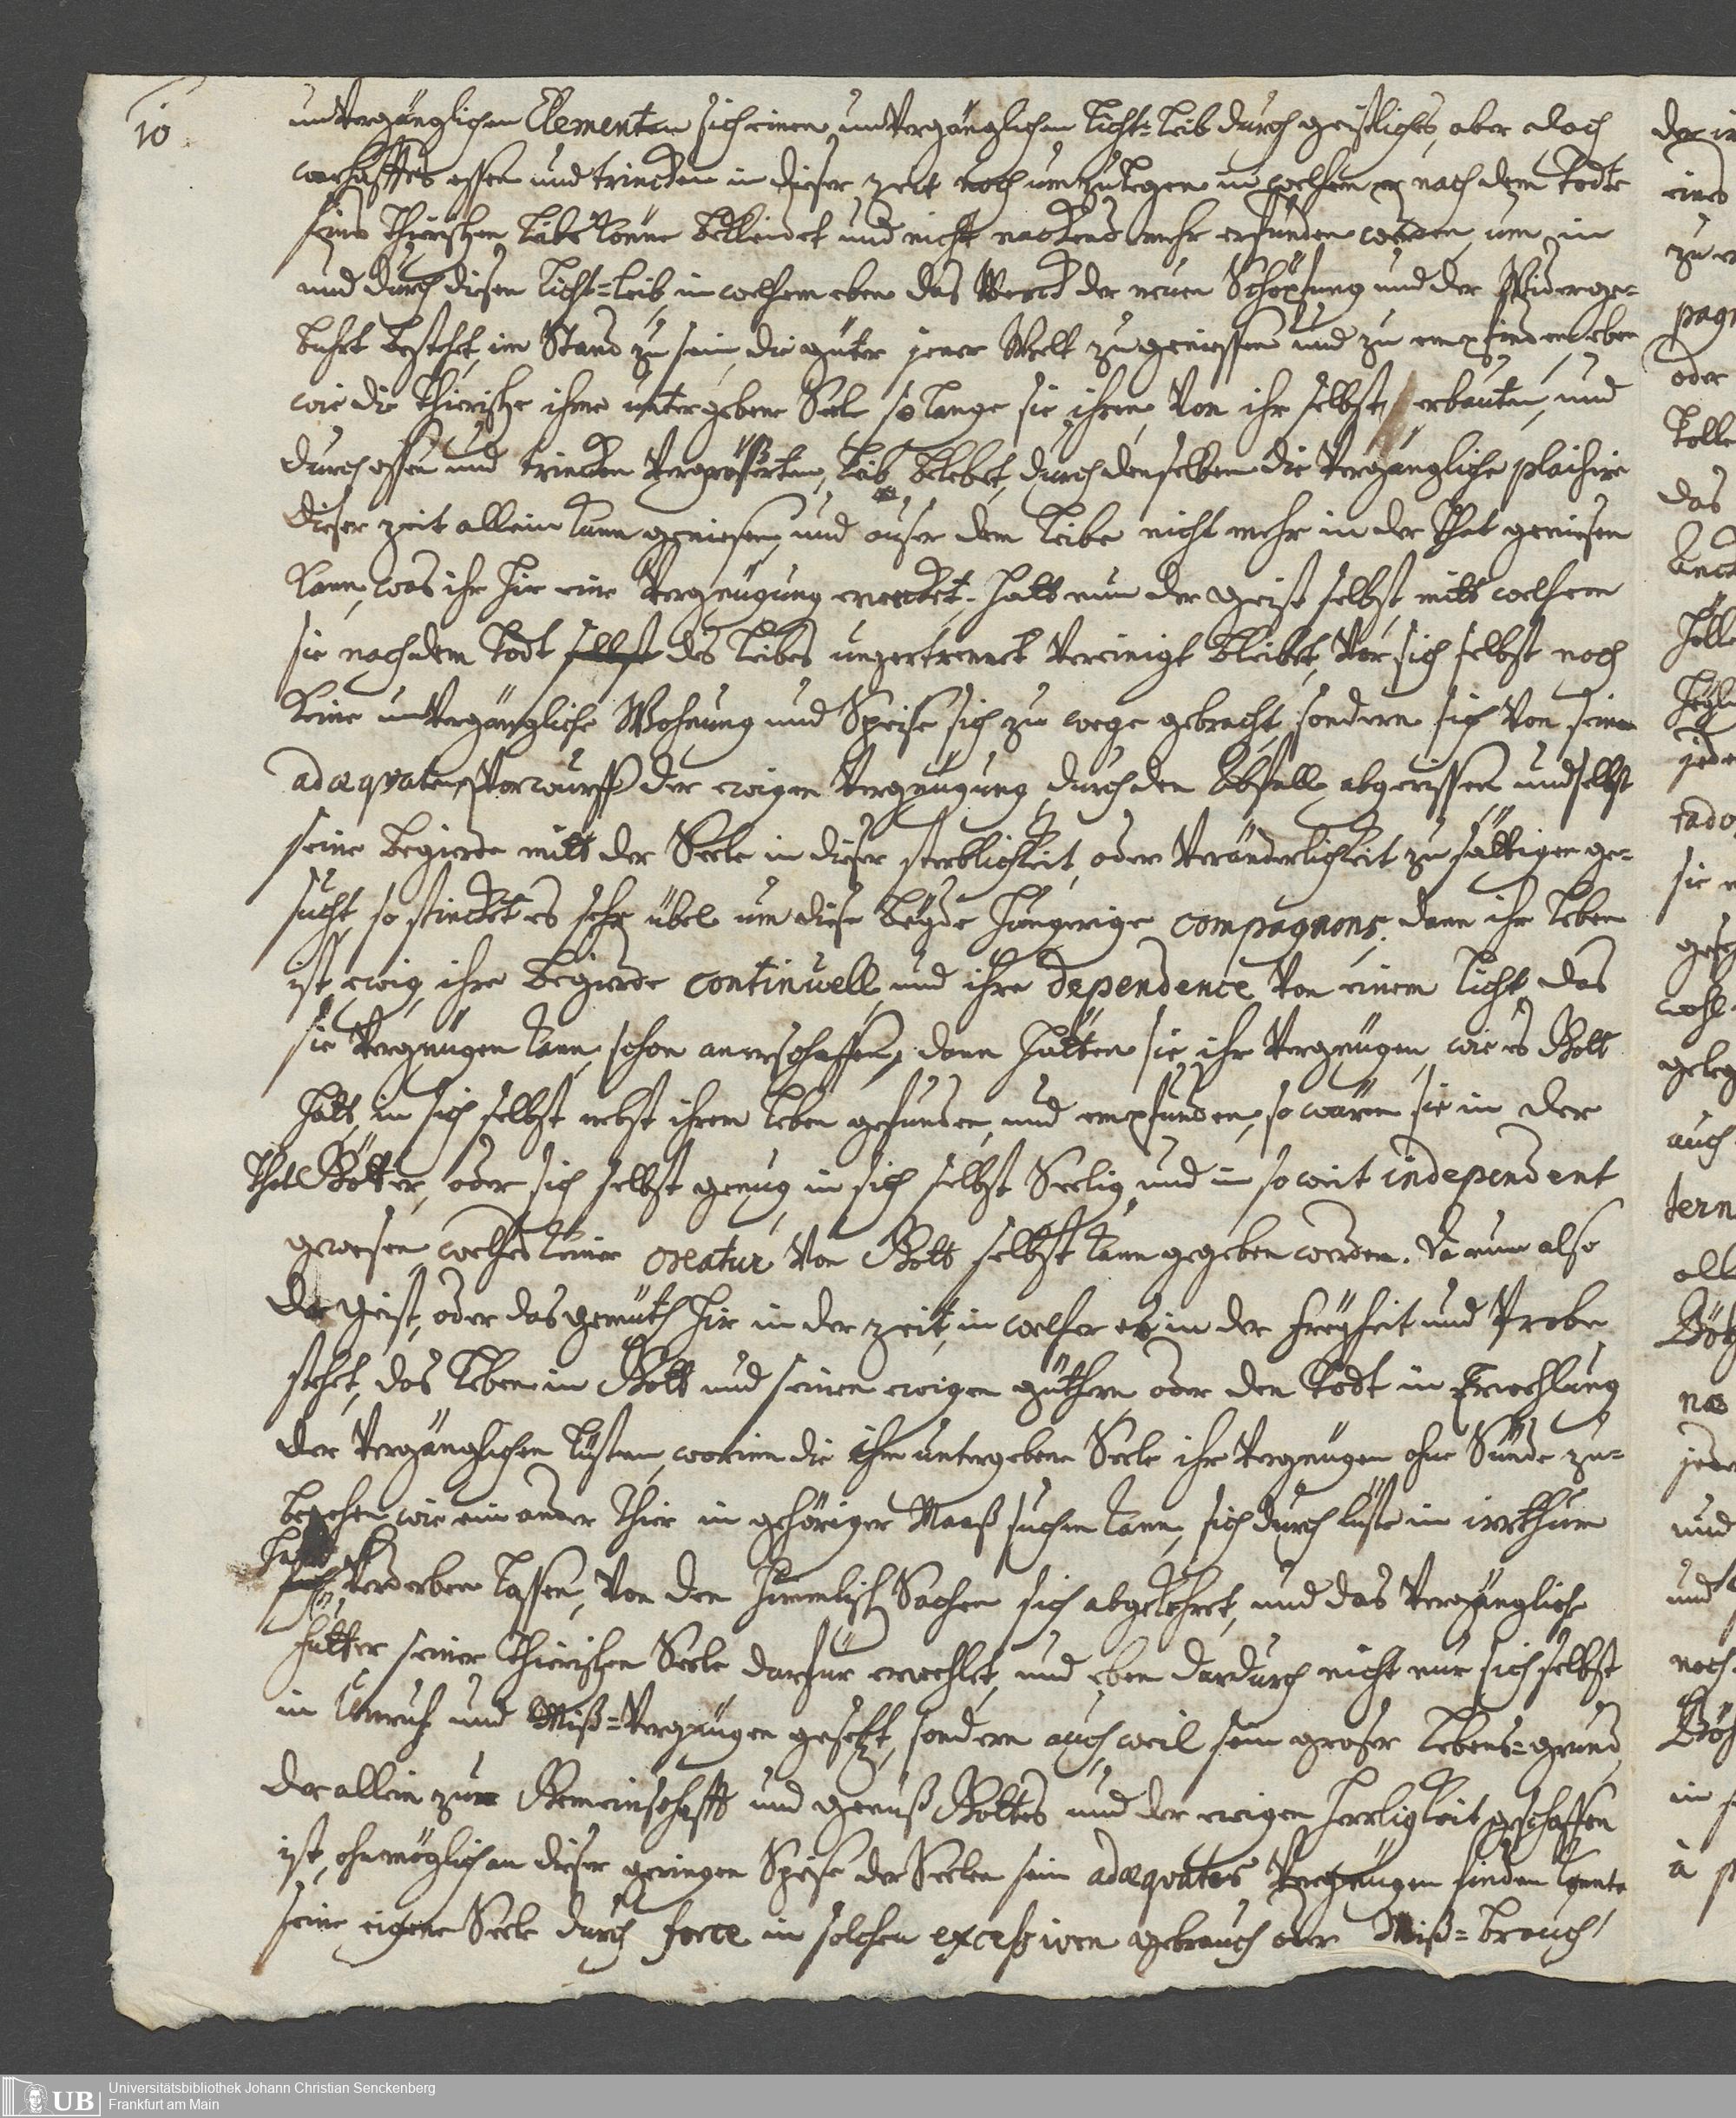 10
unvergänglichen Elementen sich einen unvergänglichen Licht-Leib durch geistliches, aber doch
warhafftes essen und trincken in dieser zeit noch umzulegen in welchen er nach dem Todte
seines Thierischen Leibs könne bekleidet und nicht nackend mehr erfunden werden, um in
und durch disen Licht-Leib, in welchem eben das Werck der neuen Schöpfung und der Widerge-
buhrt bestehet, im Stand zu sein, die güter jener Welt zu geniessen und zu empfinden, eben
wie die Thierische ihme untergebene Seele so lange sie ihren, von ihr selbst erbauten, und
durch essen und trincken vergrösserten, Leib belebet, durch denselben die vergängliche plaisire
dieser zeit allein kann geniesen, und auser dem Leibe nicht mehr in der That geniesen
kann, was ihr hir eine Vergnügung erwecket. Hatt nun der Geist selbst, mitt welchem
sie nach dem Todt selbst des Leibes unzertrennt vereinigt bleibet, vor sich selbst noch
keine unvergängliche Wohnung und Speise sich zu wege gebracht, sondern sich von seinem
adæqvaten Vorwurff der ewigen Vergnügung durch den Abfall abgerissen und selbst
seine Begierde mitt der Seele in dieser sterblichkeit, oder veränderlichkeit zu sättigen ge-
sucht, so stincket es sehr übel um diese beyde hungerige compagnons, dann ihr Leben
ist ewig, ihre Begierde continuell und ihre dependence von einem Licht, das
sie vergnügen kann, schon anerschaffen, dann hätten sie ihr Vergnügen, wie es Gott
hatt, in sich selbst nebst ihrem Leben gefunden, und empfunden, so wären sie in der
That Götter, oder sich selbst genug, in sich selbst Seelig, und in so weit independent
gewesen, welches keiner Creatur von Gott selbst kann gegeben werden. Da nun also
der Geist, oder das gemüth hir in der zeit, in welcher es in der freyheit und Probe
stehet, das Leben in Gott und seinen ewigen güthern, oder den Todt in Erwehlung
der vergänglichen Lüsten, worinn die ihm untergebene Seele ihr Vergnügen ohne Sünde zu-
begehen, wie ein ander Thier in gehöriger Maaß suchen kann, sich durch lüste in irrthum
hatt
verderben lassen, von den himmlisch Sachen sich abgekehret, und das vergängliche
futter seiner Thierischen Seele darfür erwehlet, und eben dardurch nicht nur sich selbst
in Unruh und Miß-Vergnügen gesetzt, sondern auch, weil sein groser Lebens-grund,
der allein zur Gemeinschafft und genuß Gottes und der ewigen Herrligkeit geschaffen
ist, ohnmöglich an dieser geringen Speise der Seelen sein adæqvates Vergnügen finden konte
seine eigene Seele durch force in solchen excessiven gebrauch oder Miß-brauch
pagn
oder
das
sie
wohl
geleg
auch
tern
und
und
noch
in
à
Universitätsbibliothek Johann Christian Senckenberg
Frankfurt am Main
UB